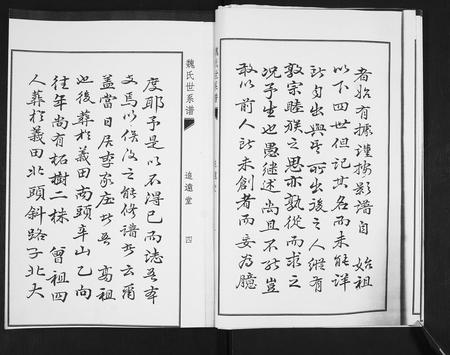 者始有據謹按影譜自 始祖
以下四世但記其名而未能詳
所自出與其所出後之人縱有
敦宗睦族之思亦孰從而求之
況予生也愚繼述尚且不能豈
敢以前人所未創者而妄為臆
魏氏世系谱
追遠堂
魏氏世系谱
追遠堂
四
度耶予是以不得已而誌吾本
支焉以俟後之能修譜者云爾
蓋當日居李家庄者 高祖
也後葬於義田南頭辛山乙向
往年尚有柘樹二株 曾祖四
人葬於義田北頭斜路子北大